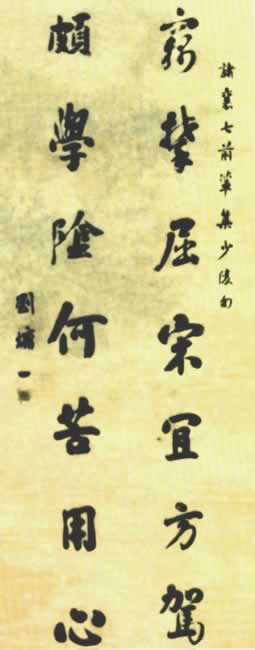 諸襄七前輩集少陵句
竊攀屈宋宜方駕
頗學陰何苦用心
劉墉